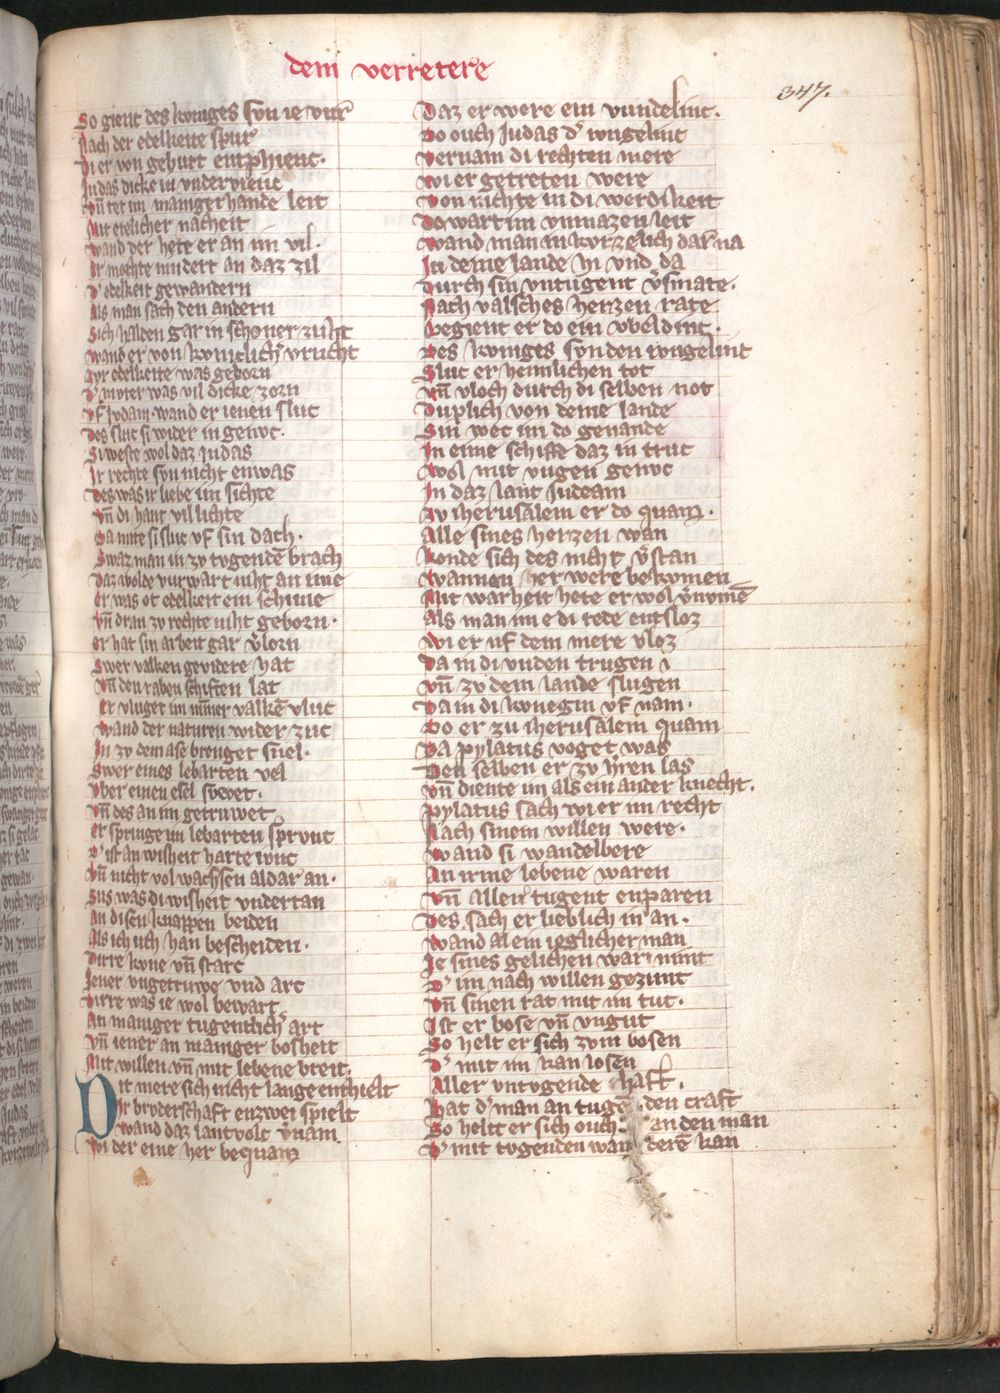 dem verretere
347.
So gienc des koniges sun ie vur
Nach der edelkeite spur
Di er von geburt entphienc.
Judas dicke in undervienc
Vn̄ tet im maniger hande leit
Mit etelicher nacheit
Wand der hete er an im vil.
Er mochte nindert an daz zil
D' edelkeit gewandern
Als man sach den andern
Sich halden gar in schoner zuht
wand er von kuniclich' vrucht
Zvr edelkeite was geborn
D' muter was vil dicke zorn
Vf Judam wand er ienen sluc
Des sluc si wider in genvc.
Si weste wol daz Judas
Ir rechte svn nicht enwas
Des was ir liebe im sichte
Vn̄ di hant vil lichte
Da mite si sluc vf sin dach.
Swaz man in zv togendē brach
Daz wolde vurwart niht an ime
er was ot edelkeit ein schime
Vn̄ dran zv rechte niht geborn.
er hat sin arbeit gar v̓lorn
Swer valken gevidere hat
Vn̄ den raben schiften lat
Er vluget im nim̄er valkē vluc
Wand der naturen wider zuc
In zv dem ase brenget snel.
Swer eines lebarten vel
Vber einen esel svwet.
Vn̄ des an im getruwet
er springe im lebarten sprunc
D' ist an wisheit harte iunc
Vn̄ nicht vol wachsen aldar an.
Sus was di wisheit vndertan
An disen knappen beiden
Als ich uch han bescheiden.
Dirre kone vn̄ starc
Jener vngetruwe vnd arc
Dirre was ie wol bewart
An maniger tugentlich' art
Vn̄ iener an maniger bosheit
Mit willen vn̄ mit lebene breit.
Dit mere sich nicht lange enthielt
Ir bruderschaft enzwei spielt
wand daz lantvolc v̓nam
Wi der eine her bequam
Daz er were ein vundelinc.
Do ouch Judas d' iungelinc
Vernam di rechten mere
Wi er getreten were
Von nichte in di werdikeit
Do wart im vnmazen leit
Wand man in kvrzelich dar na
In deme lande hi vnd da
Durch sin vntugent v̓smate.
Nach valsches herzen rate
Begienc er do ein vbel dinc.
Des koniges svn den iungelinc
Sluc er heimlichen tot
Vn̄ vloch durch di selben not
Duplich von deme lande
Sin wec im do genande
In eime schiffe daz in truc
Wol mit vugen genvc
In daz lant Judeam
Zv iherusalem er do quam.
Alle sines herzen wan
Konde sich des nicht v̓stan
Wannen her were bekvmen
Mit warheit hete er wol v̓nvmē
Als man im e di rede entsloz
Wi er uf dem mere vloz
Da in di vnden trugen
Vn̄ zv dem lande slugen
Da in di konegin vf nam.
Do er zu iherusalem quam
Da pylatus voget was
Den selben er zv h̓ren las
Vn̄ diente im als ein ander knecht.
Pylatus sach wi er im recht
Nach sinem willen were.
Wand si wandelbere
An irme lebene waren
Vn̄ aller tugent enparen
Des sach er lieblich in an.
Wand al ein ieglicher man
Je sines gelichen war nimt
D' im nach willen gezimt
Vn̄ sinen rat mit im tut.
Ist er bose vn̄ vngut
So helt er sich zvm bosen
D' mit im kan losen
Aller vntvgende haft.
Hat d' man an tugenden craft
So heltt er sich ouch an den man
D' mit togenden wanderē kan